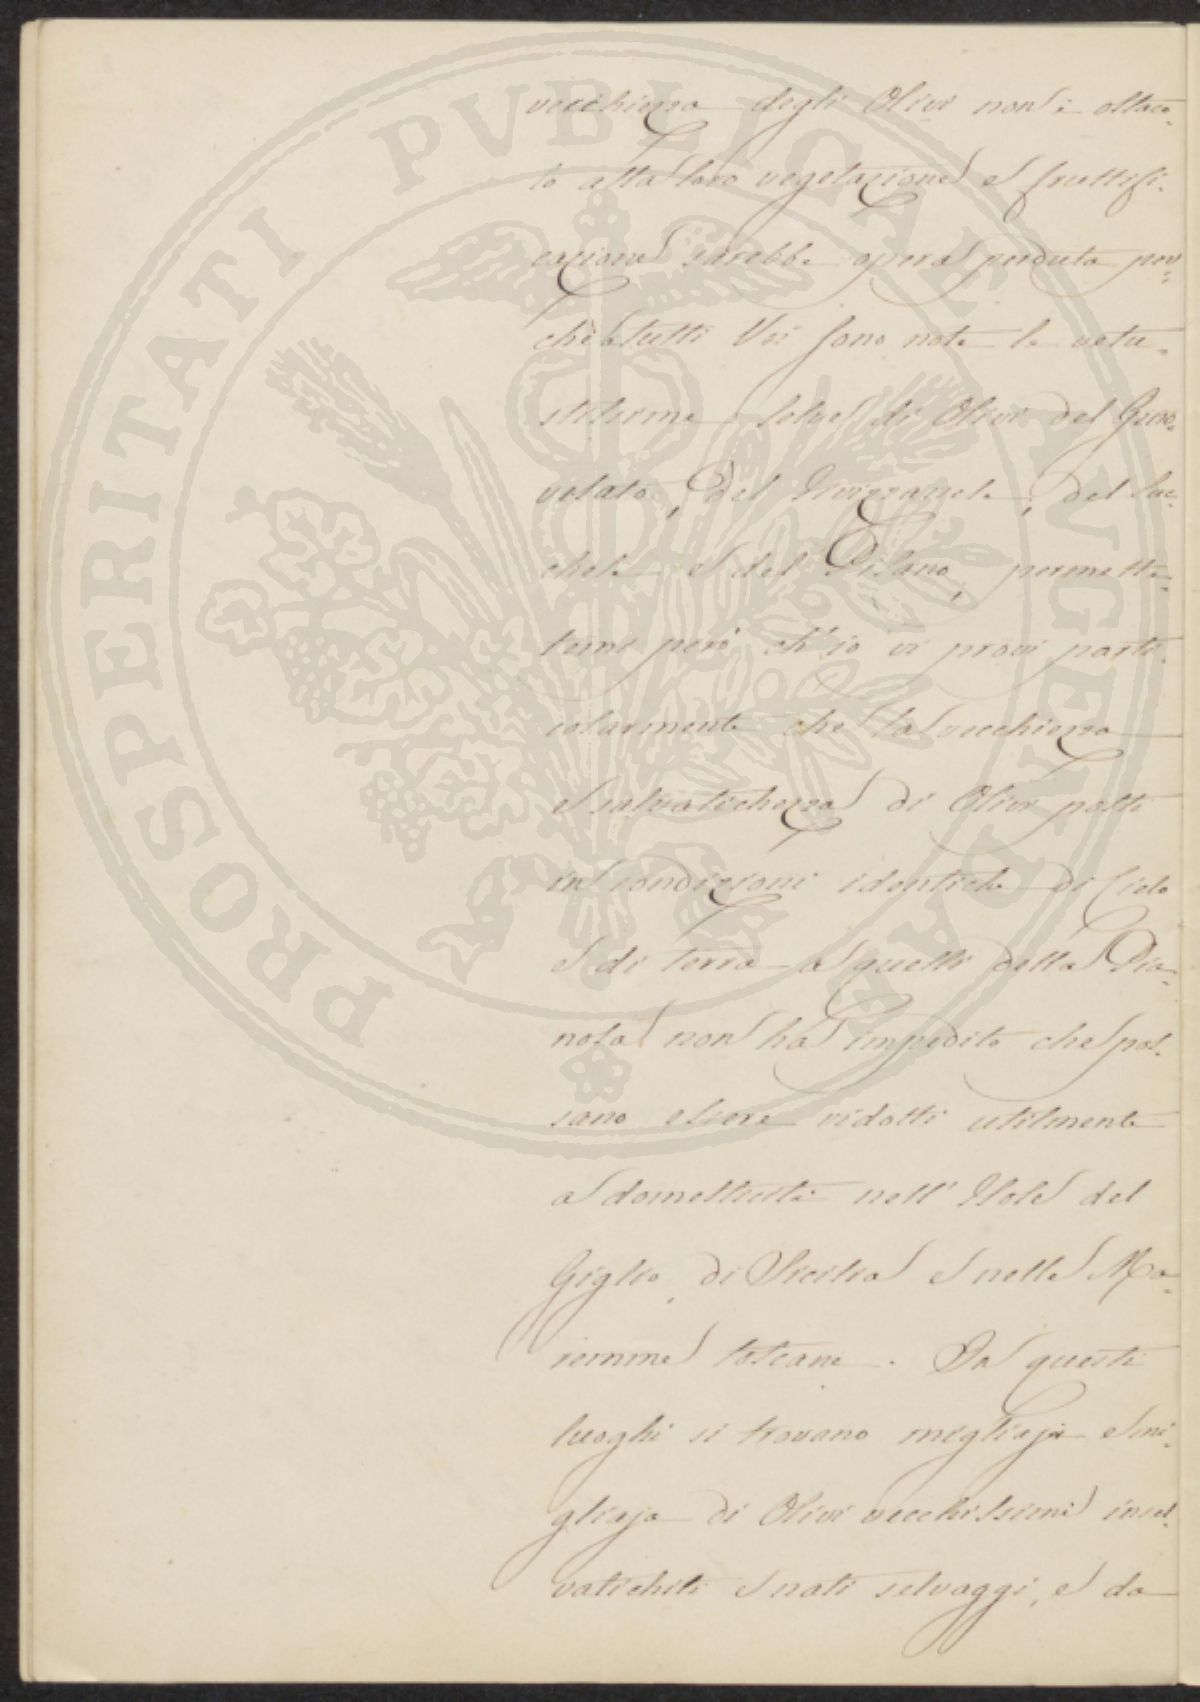 vecchiezza degli Olivi non è ostaco-
lo alla loro vegetazione e fruttifi-
cazione sarebbe opera perduta per-
chè a tutti Voi sono note le vetu-
stissime selve di Olivi del
del del Luc-
chese e del Pisano, permette-
temi però ch'io vi provi parti-
colarmente che la vecchiezza
e salvatichezza di Olivi posti
in condizioni identiche di Cielo
e di terra a quelli della Pia-
nosa non ha impedito che pos-
sano essere ridotti utilmente
a domesticità nell'Isole del
Giglio, di Sicilia e nelle Ma-
remme toscane. In questi
luoghi si trovano migliaja e mi-
gliaja di Olivi vecchissimi insel-
vatichiti e nati selvaggi, e da
PROSPERITATI PVBLICAE AVGENDAE